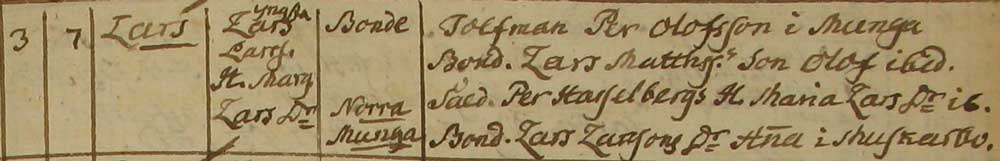 3 7 Lars yngsta Bonde Tolfman Per Olofsson i Munga
Lars Bond. Lars Matthss.s Son Olof ibid.
Larss.
H. Marg Såld. Per Hasselbergs H. Maria Lars Dr i 6.
Lars Dr Norra
Munga Bond. Lars Larssons Dr Aña i Muskarbo.